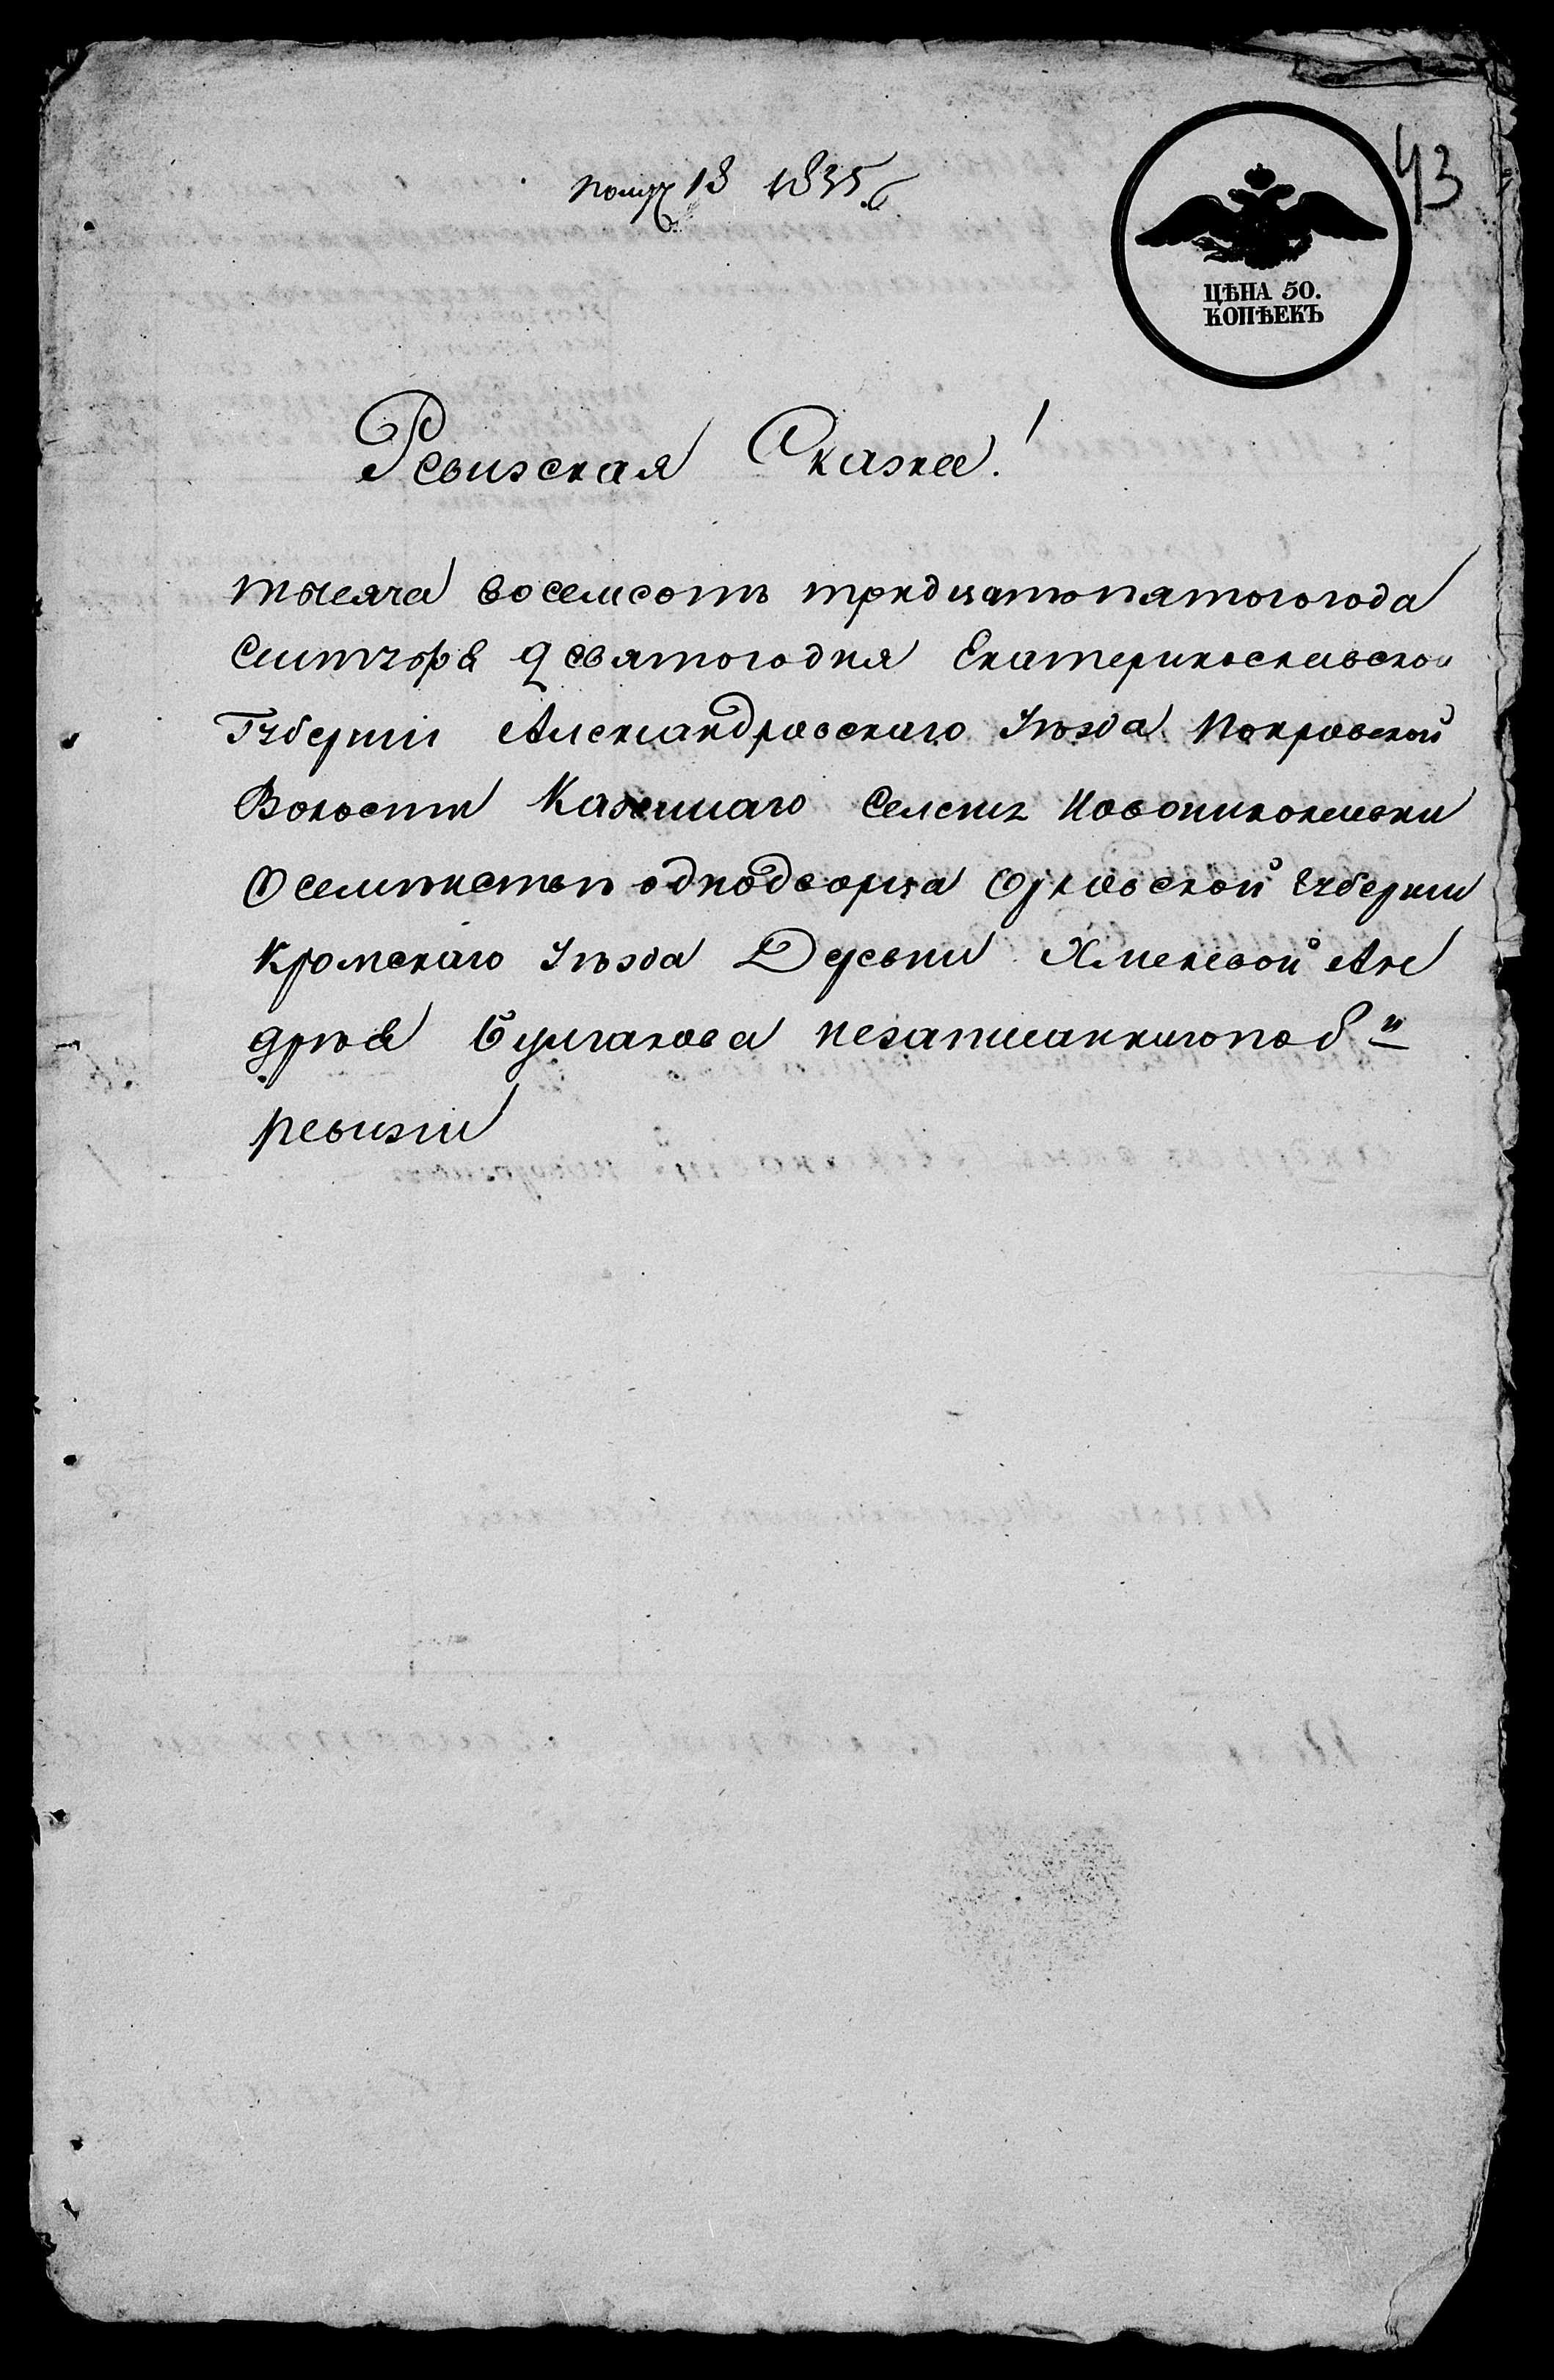 Получ 18 1835
43
ЦѢНА 50.
КОПѢЕКЪ
Ревизская Сказка!
тысяча восемсотъ тридцатопятогогода
девятогодня Екатеринославской
Губерніи Александровскаго Уѣзда Покровской
Волости Новониколаевки
однодворца Орловской Губерніи
Кромскаго Уѣзда Деревни Хмелевой Ан
дрѣя Булгакова незаписаннагопо 8й
ревизіи